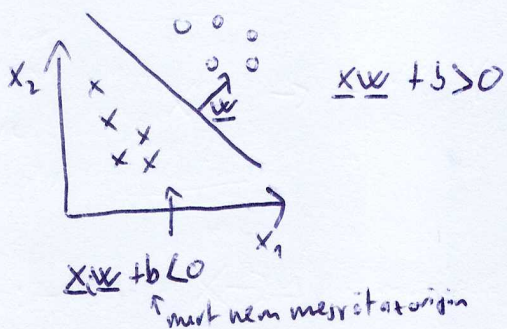 x₂
w
xw + b > 0
x₁
xw + b < 0
↑ mert nem megy át az origin